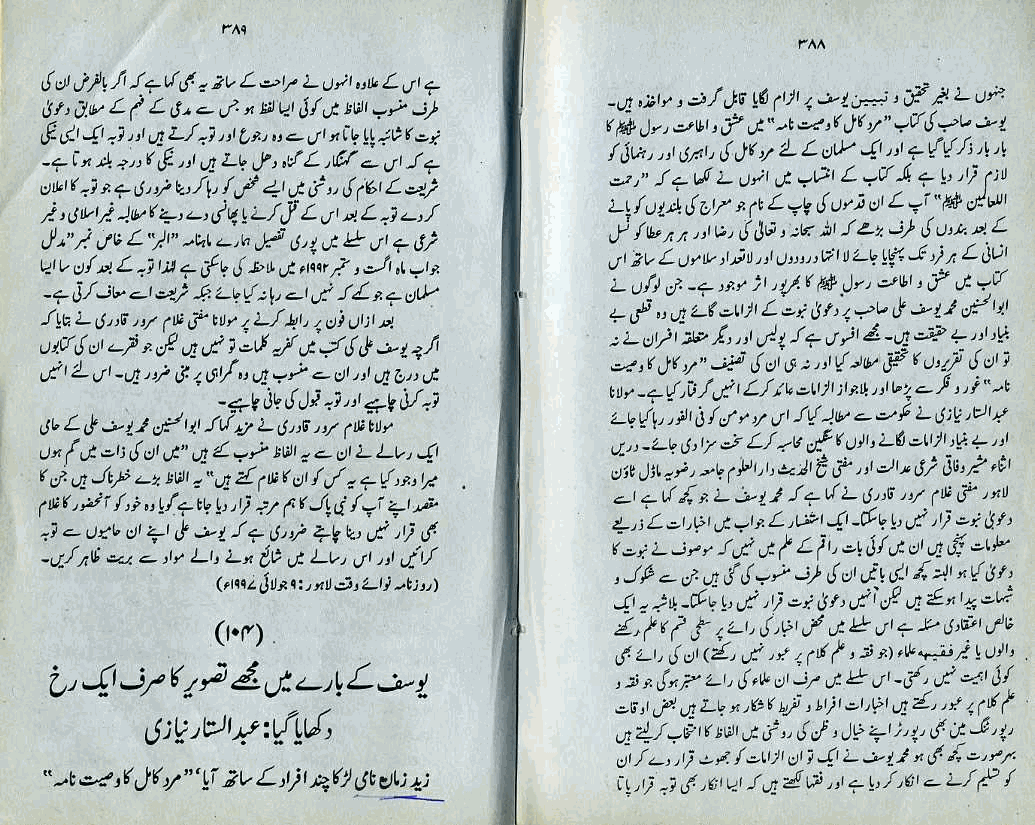 ۳۸۸
جنہوں نے بغیر تحقیق و تبیین یوسف پر الزام لگایا قابل گرفت و مواخذہ ہیں۔
یوسف صاحب کی کتاب "مرد کامل کا وصیت نامہ" میں عشق و اطاعت رسول ﷺ کا
بار بار ذکر کیا گیا ہے اور ایک مسلمان کے لئے مرد کامل کی راہبری اور رہنمائی کو
لازم قرار دیا ہے بلکہ کتاب کے انتساب میں انہوں نے لکھا ہے کہ "رحمت
اللعالمین ﷺ" آپ کے ان قدموں کی چاپ کے نام جو معراج کی بلندیوں کو پانے
کے بعد بندوں کی طرف بڑھے کہ اللہ سبحانہ و تعالیٰ کی رضا اور ہر ہر عطا کو نسل
انسانی کے ہر فرد تک پہنچایا جائے لا انتہا درودوں اور لاتعداد سلاموں کے ساتھ اس
کتاب میں عشق و اطاعت رسول ﷺ کا بھرپور اثر موجود ہے۔ جن لوگوں نے
ابوالحسنین محمد یوسف علی صاحب پر دعویٰ نبوت کے الزامات لگائے ہیں وہ قطعی بے
بنیاد اور بے حقیقت ہیں۔ مجھے افسوس ہے کہ پولیس اور دیگر متعلقہ افسران نے نہ
تو ان کی تقریروں کا تحقیقی مطالعہ کیا اور نہ ہی ان کی تصنیف "مرد کامل کا وصیت
نامہ" غور و فکر سے پڑھا اور بلاجواز الزامات عائد کرکے انہیں گرفتار کیا ہے۔ مولانا
عبدالستار نیازی نے حکومت سے مطالبہ کیا کہ اس مرد مومن کو فی الفور رہا کیا جائے
اور بے بنیاد الزامات لگانے والوں کا سنگین محاسبہ کرکے سخت سزا دی جائے۔ دریں
اثناء مشیر وفاقی شرعی عدالت اور مفتی شیخ الحدیث دارالعلوم جامعہ رضویہ ماڈل ٹاؤن
لاہور مفتی غلام سرور قادری نے کہا ہے کہ محمد یوسف نے جو کچھ کہا ہے اسے
دعویٰ نبوت قرار نہیں دیا جاسکتا۔ ایک استفسار کے جواب میں اخبارات کے ذریعے
معلومات پہنچی ہیں ان میں کوئی بات راقم کے علم میں نہیں کہ موصوف نے نبوت کا
دعویٰ کیا ہو البتہ کچھ ایسی باتیں ان کی طرف منسوب کی گئی ہیں جن سے شکوک و
شبہات پیدا ہوسکتے ہیں لیکن انہیں دعویٰ نبوت قرار نہیں دیا جاسکتا۔ بلاشبہ یہ ایک
خالص اعتقادی مسئلہ ہے اس سلسلے میں محض اخبار کی رائے پر سطحی قسم کا علم رکھنے
والوں یا غیر فقیہہ علماء (جو فقہ و علم کلام پر عبور نہیں رکھتے) ان کی رائے بھی
کوئی اہمیت نہیں رکھتی۔ اس سلسلے میں صرف ان علماء کی رائے معتبر ہوگی جو فقہ و
علم کلام پر عبور رکھتے ہیں اخبارات افراط و تفریط کا شکار ہو جاتے ہیں بعض اوقات
رپورٹنگ میں بھی رپورٹر اپنے خیال و ظن کی روشنی میں الفاظ کا انتخاب کرلیتے ہیں
بہرصورت کچھ بھی ہو محمد یوسف نے ایک تو ان الزامات کو جھوٹ قرار دے کر ان
کو تسلیم کرنے سے انکار کر دیا ہے اور فقہا لکھتے ہیں کہ ایسا انکار بھی توبہ قرار پاتا
۳۸۹
ہے اس کے علاوہ انہوں نے صراحت کے ساتھ یہ بھی کہا ہے کہ اگر بالفرض ان کی
طرف منسوب الفاظ میں کوئی ایسا لفظ ہو جس سے مدعی کے فہم کے مطابق دعویٰ
نبوت کا شائبہ پایا جاتا ہو اس سے وہ رجوع اور توبہ کرتے ہیں اور توبہ ایک ایسی نیکی
ہے کہ اس سے گنہگار کے گناہ دھل جاتے ہیں اور نیکی کا درجہ بلند ہوتا ہے۔
شریعت کے احکام کی روشنی میں ایسے شخص کو رہا کر دینا ضروری ہے جو توبہ کا اعلان
کر دے توبہ کے بعد اس کے قتل کرنے یا پھانسی دے دینے کا مطالبہ غیر اسلامی و غیر
شرعی ہے اس سلسلے میں پوری تفصیل ہمارے ماہنامہ "البر" کے خاص نمبر "مدلل
جواب ماہ اگست و ستمبر ۱۹۹۲ء میں ملاحظہ کی جاسکتی ہے لہٰذا توبہ کے بعد کون سا ایسا
مسلمان ہے جو کہے کہ نہیں اسے رہا نہ کیا جائے جبکہ شریعت اسے معاف کرتی ہے۔
بعد ازاں فون پر رابطہ کرنے پر مولانا مفتی غلام سرور قادری نے بتایا کہ
اگرچہ یوسف علی کی کتب میں کفریہ کلمات تو نہیں ہیں لیکن جو فقرے ان کی کتابوں
میں درج ہیں اور ان سے منسوب ہیں وہ گمراہی پر مبنی ضرور ہیں۔ اس لئے انہیں
توبہ کرنی چاہیے اور توبہ قبول کی جانی چاہیے۔
مولانا غلام سرور قادری نے مزید کہا کہ ابوالحسنین محمد یوسف علی کے حامی
ایک رسالے نے ان سے یہ الفاظ منسوب کئے ہیں "میں ان کی ذات میں گم ہوں
میرا وجود کیا ہے یہ کس کو ان کا غلام کہتے ہیں" یہ الفاظ بڑے خطرناک ہیں جن کا
مقصد اپنے آپ کو نبی پاک کا ہم مرتبہ قرار دیا جانا ہے گویا وہ خود کو آنحضور کا غلام
بھی قرار نہیں دینا چاہتے ضروری ہے کہ یوسف علی اپنے ان حامیوں سے توبہ
کرائیں اور اس رسالے میں شائع ہونے والے مواد سے بریت ظاہر کریں۔
(روزنامہ نوائے وقت لاہور: ۹ جولائی ۱۹۹۷ء)
(۱۰۴)
یوسف کے بارے میں مجھے تصویر کا صرف ایک رخ
دکھایا گیا: عبدالستار نیازی
زید زمان نامی لڑکا چند افراد کے ساتھ آیا' "مرد کامل کا وصیت نامہ"